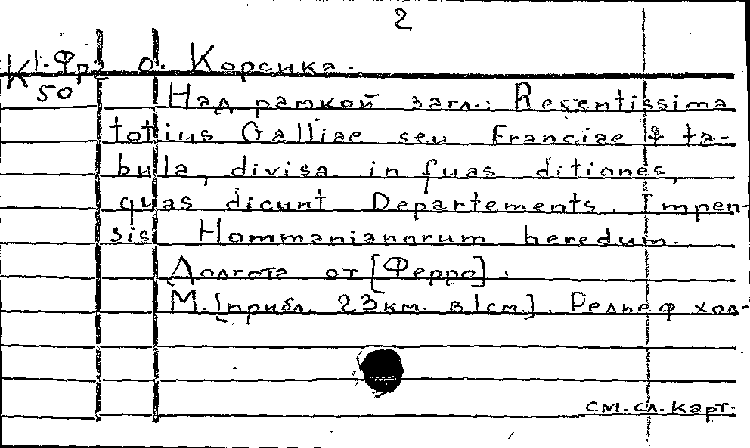 2
К 1-Фр. о. Корсика.
50
Над рамкой загл.: Recentissima
totius Galliae seu Franciae & ta-
bula, divisa in suas ditiones,
quas dicunt Departements. Impen-
sis Hommanianorum heredum.
Долгота от [Ферро].
М. [прибл. 23км. в 1см.]. Рельеф хол-
см. сл. карт.